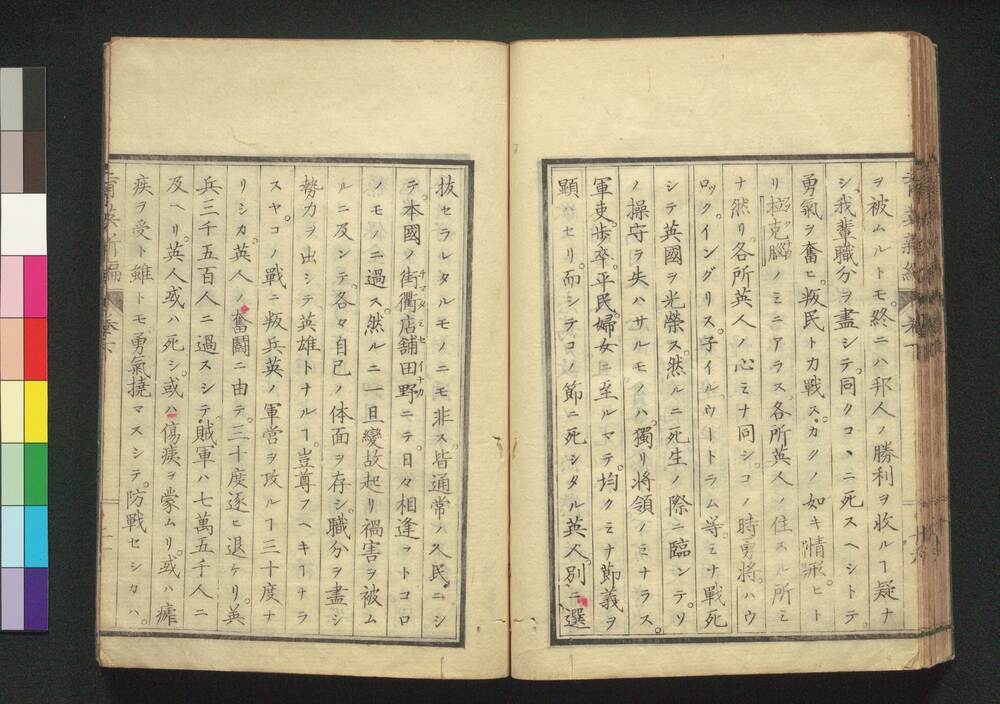 ヲ被ムルトモ。終ニハ邦人ノ勝利ヲ收ルヿ疑ナ
シ、我輩職分ヲ盡シテ。同クコヽニ死スヘシトテ。
勇氣ヲ奮ヒ。叛民トカ戰ス。カクノ如キ情形ヒト
リ極克腦ノミニアラス各所英人ノ住スル所ミ
ナ然リ。各所英人ノ心ミナ同シ。コノ時勇將。ハウ
ロック。イングリス。子イル。ウートラム等。ミナ戰死
シテ英國ヲ光榮ス。然ルニ死生ノ際ニ臨ンテ。ソ
ノ操守ヲ失ハサルモノハ。獨リ將領ノミナラス。
軍吏。歩卒。平民。婦女ニ至ルマテ。均クミナ節義ヲ
顯ハセリ。而シテコノ節ニ死シタル英人。別ニ選
拔セラレタルモノニモ非ス。皆通常ノ久民。ニシ
テ。本國ノ街衢店舖田野ニテ。日々相逢フトコロ
ノモノニ過ス。然ルニ一旦變故起リ禍害ヲ被ム
ルニ及ンテ。各々自己ノ体面ヲ存シ。職分ヲ盡シ
勢カヲ出シテ英雄トナルヿ。豈尊フヘキヿナラ
スヤ。コノ戰ニ叛兵英ノ軍營ヲ攻ルヿ三十度ナ
リシカ。英人ノ奮鬪ニ由テ。三十度逐ヒ退ケリ。英
兵三千五百人ニ過スシテ。賊軍ハ七萬五千人ニ
及ヘリ。英人或ハ死シ。或ハ傷痍ヲ蒙ムリ。或ハ瘧
疾ヲ受ト雖トモ勇氣撓マスシテ。防戰セシカハ。